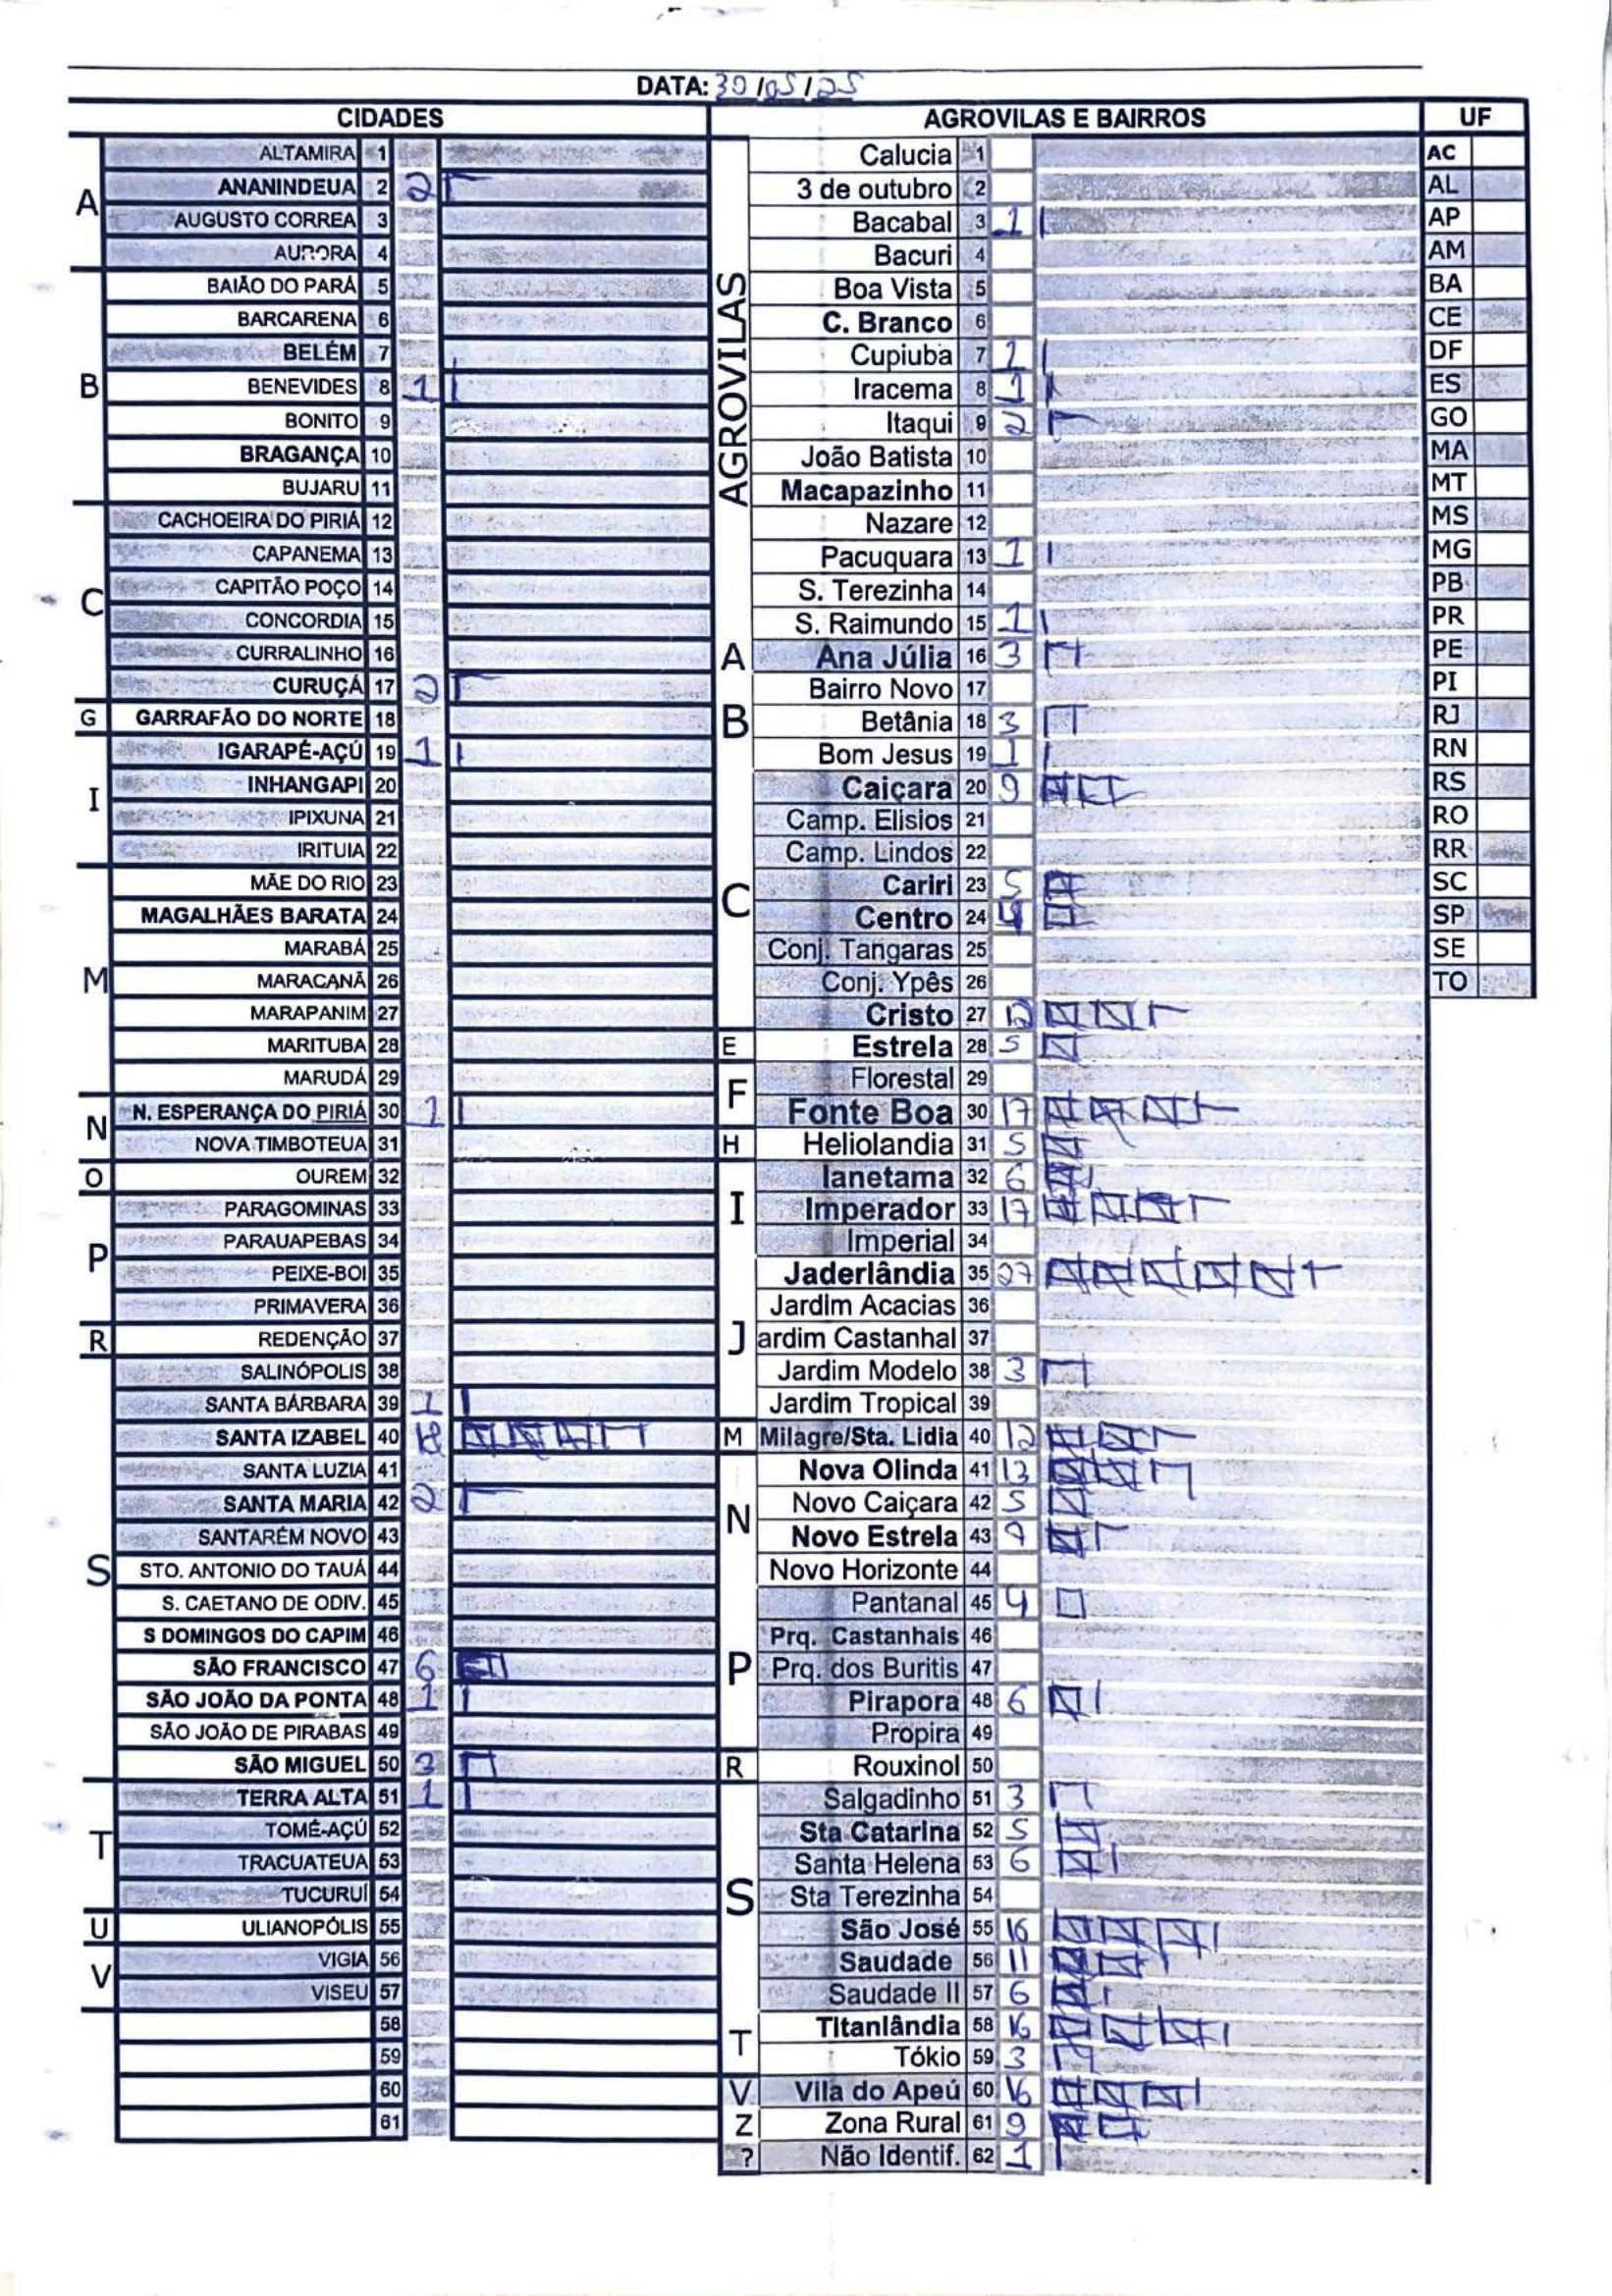 DATA: 30/05/25
CIDADES
A
ALTAMIRA 1
ANANINDEUA 2 2
AUGUSTO CORREA 3
AURORA 4
B
BAIÃO DO PARÁ 5
BARCARENA 6
BELÉM 7
BENEVIDES 8 1
BONITO 9
BRAGANÇA 10
BUJARU 11
C
CACHOEIRA DO PIRIÁ 12
CAPANEMA 13
CAPITÃO POÇO 14
CONCORDIA 15
CURRALINHO 16
CURUÇÁ 17 2
G
GARRAFÃO DO NORTE 18
I
IGARAPÉ-AÇÚ 19 1
INHANGAPI 20
IPIXUNA 21
IRITUIA 22
M
MÃE DO RIO 23
MAGALHÃES BARATA 24
MARABÁ 25
MARACANÃ 26
MARAPANIM 27
MARITUBA 28
MARUDÁ 29
N
N. ESPERANÇA DO PIRIÁ 30 1
NOVA TIMBOTEUA 31
O
OUREM 32
P
PARAGOMINAS 33
PARAUAPEBAS 34
PEIXE-BOI 35
PRIMAVERA 36
R
REDENÇÃO 37
S
SALINÓPOLIS 38
SANTA BÁRBARA 39 1
SANTA IZABEL 40
SANTA LUZIA 41
SANTA MARIA 42 2
SANTARÉM NOVO 43
STO. ANTONIO DO TAUÁ 44
S. CAETANO DE ODIV. 45
S DOMINGOS DO CAPIM 46
SÃO FRANCISCO 47 6
SÃO JOÃO DA PONTA 48 1
SÃO JOÃO DE PIRABAS 49
SÃO MIGUEL 50 3
T
TERRA ALTA 51 1
TOMÉ-AÇÚ 52
TRACUATEUA 53
TUCURUÍ 54
U
ULIANOPÓLIS 55
V
VIGIA 56
VISEU 57
58
59
60
61
AGROVILAS E BAIRROS
AGROVILAS
Calucia 1
3 de outubro 2
Bacabal 3 1
Bacuri 4
Boa Vista 5
C. Branco 6
Cupiuba 7 1
Iracema 8 1
Itaqui 9 2
João Batista 10
Macapazinho 11
Nazare 12
Pacuquara 13 1
S. Terezinha 14
S. Raimundo 15 1
A
Ana Júlia 16 3
B
Bairro Novo 17
Betânia 18 3
Bom Jesus 19 1
C
Caiçara 20 9
Camp. Elisios 21
Camp. Lindos 22
Cariri 23 5
Centro 24 4
Conj. Tangaras 25
Conj. Ypês 26
Cristo 27 12
E
Estrela 28 5
F
Florestal 29
Fonte Boa 30 17
H
Heliolandia 31 5
I
Ianetama 32 6
Imperador 33 17
Imperial 34
J
Jaderlândia 35 27
Jardim Acacias 36
ardim Castanhal 37
Jardim Modelo 38 3
Jardim Tropical 39
M
Milagre/Sta. Lidia 40 12
N
Nova Olinda 41 13
Novo Caiçara 42 5
Novo Estrela 43
Novo Horizonte 44
P
Pantanal 45 4
Prq. Castanhais 46
Prq. dos Buritis 47
Pirapora 48 6
Propira 49
R
Rouxinol 50
S
Salgadinho 51 3
Sta Catarina 52 5
Santa Helena 53 6
Sta Terezinha 54
São José 55 16
Saudade 56 11
Saudade II 57 6
T
Titanlândia 58 16
Tókio 59 3
V
Vila do Apeú 60 16
Z
Zona Rural 61 9
?
Não Identif. 62 1
UF
AC
AL
AP
AM
BA
CE
DF
ES
GO
MA
MT
MS
MG
PB
PR
PE
PI
RJ
RN
RS
RO
RR
SC
SP
SE
TO